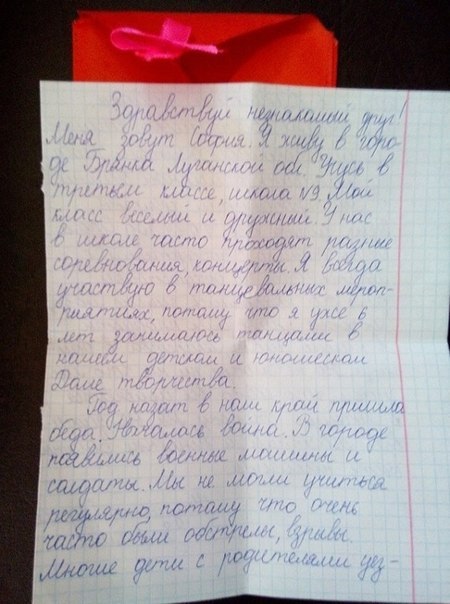 Здравствуй незнакомый друг!
Меня зовут София. Я живу в горо-
де Брянка Луганской обл. Учусь в
третьем классе, школа №9. Мой
класс весёлый и дружный. У нас
в школе часто проходят разные
соревнования, концерты. Я всегда
участвую в танцевальных мероп-
риятиях, потому что я уже 6
лет занимаюсь танцами в
нашем детском и юношеском
Доме творчества.
Год назат в наш край пришла
беда. Началась война. В городе
появились военные машины и
солдаты. Мы не могли учиться
регулярно, потому что очень
часто были обстрелы, взрывы.
Многие дети с родителями уез-